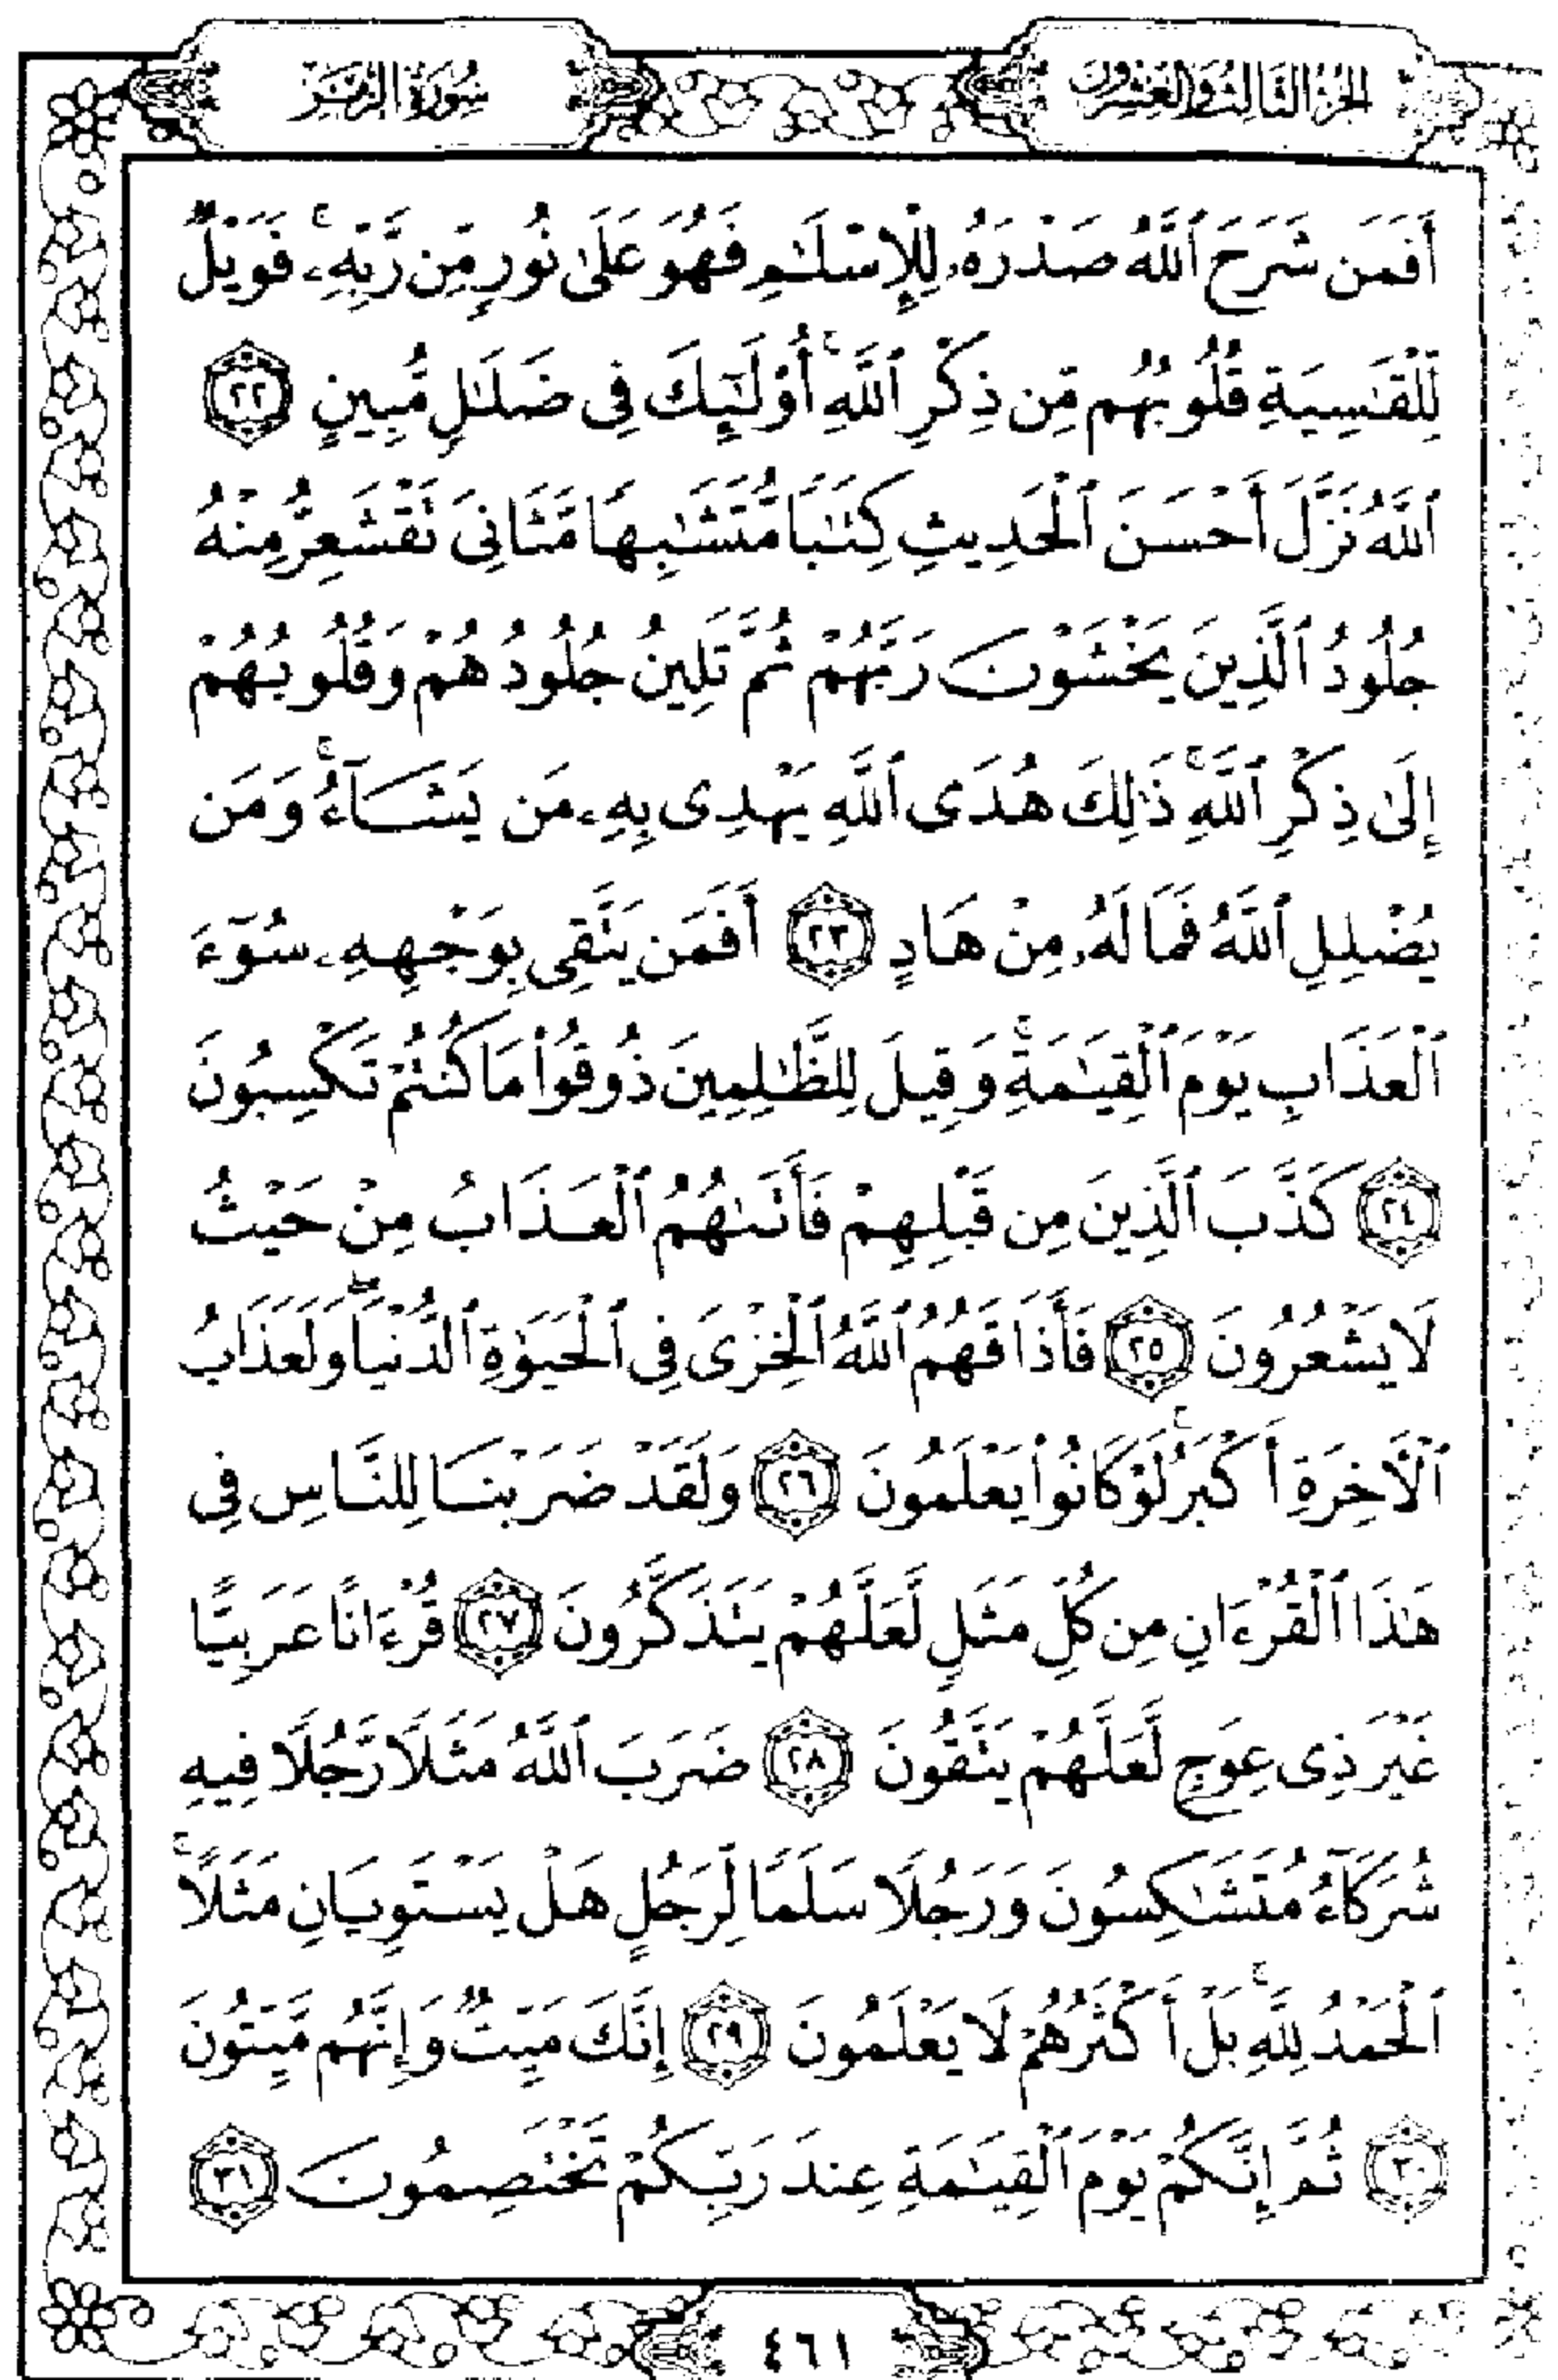 الجزء الثالث والعشرون
سورة الزمر
أَفَمَن شَرَحَ ٱللَّهُ صَدْرَهُۥ لِلْإِسْلَٰمِ فَهُوَ عَلَىٰ نُورٍ مِّن رَّبِّهِۦ ۚ فَوَيْلٌ
لِّلْقَٰسِيَةِ قُلُوبُهُم مِّن ذِكْرِ ٱللَّهِ ۚ أُو۟لَٰٓئِكَ فِى ضَلَٰلٍ مُّبِينٍ ٢٢
ٱللَّهُ نَزَّلَ أَحْسَنَ ٱلْحَدِيثِ كِتَٰبًا مُّتَشَٰبِهًا مَّثَانِىَ تَقْشَعِرُّ مِنْهُ
جُلُودُ ٱلَّذِينَ يَخْشَوْنَ رَبَّهُمْ ثُمَّ تَلِينُ جُلُودُهُمْ وَقُلُوبُهُمْ
إِلَىٰ ذِكْرِ ٱللَّهِ ۚ ذَٰلِكَ هُدَى ٱللَّهِ يَهْدِى بِهِۦ مَن يَشَآءُ ۚ وَمَن
يُضْلِلِ ٱللَّهُ فَمَا لَهُۥ مِنْ هَادٍ ٢٣ أَفَمَن يَتَّقِى بِوَجْهِهِۦ سُوٓءَ
ٱلْعَذَابِ يَوْمَ ٱلْقِيَٰمَةِ ۚ وَقِيلَ لِلظَّٰلِمِينَ ذُوقُوا۟ مَا كُنتُمْ تَكْسِبُونَ
٢٤ كَذَّبَ ٱلَّذِينَ مِن قَبْلِهِمْ فَأَتَىٰهُمُ ٱلْعَذَابُ مِنْ حَيْثُ
لَا يَشْعُرُونَ ٢٥ فَأَذَاقَهُمُ ٱللَّهُ ٱلْخِزْىَ فِى ٱلْحَيَوٰةِ ٱلدُّنْيَا ۖ وَلَعَذَابُ
ٱلْـَٔاخِرَةِ أَكْبَرُ ۚ لَوْ كَانُوا۟ يَعْلَمُونَ ٢٦ وَلَقَدْ ضَرَبْنَا لِلنَّاسِ فِى
هَٰذَا ٱلْقُرْءَانِ مِن كُلِّ مَثَلٍ لَّعَلَّهُمْ يَتَذَكَّرُونَ ٢٧ قُرْءَانًا عَرَبِيًّا
غَيْرَ ذِى عِوَجٍ لَّعَلَّهُمْ يَتَّقُونَ ٢٨ ضَرَبَ ٱللَّهُ مَثَلًا رَّجُلًا فِيهِ
شُرَكَآءُ مُتَشَٰكِسُونَ وَرَجُلًا سَلَمًا لِّرَجُلٍ هَلْ يَسْتَوِيَانِ مَثَلًا ۚ
ٱلْحَمْدُ لِلَّهِ ۚ بَلْ أَكْثَرُهُمْ لَا يَعْلَمُونَ ٢٩ إِنَّكَ مَيِّتٌ وَإِنَّهُم مَّيِّتُونَ
٣٠ ثُمَّ إِنَّكُمْ يَوْمَ ٱلْقِيَٰمَةِ عِندَ رَبِّكُمْ تَخْتَصِمُونَ ٣١
٤٦١